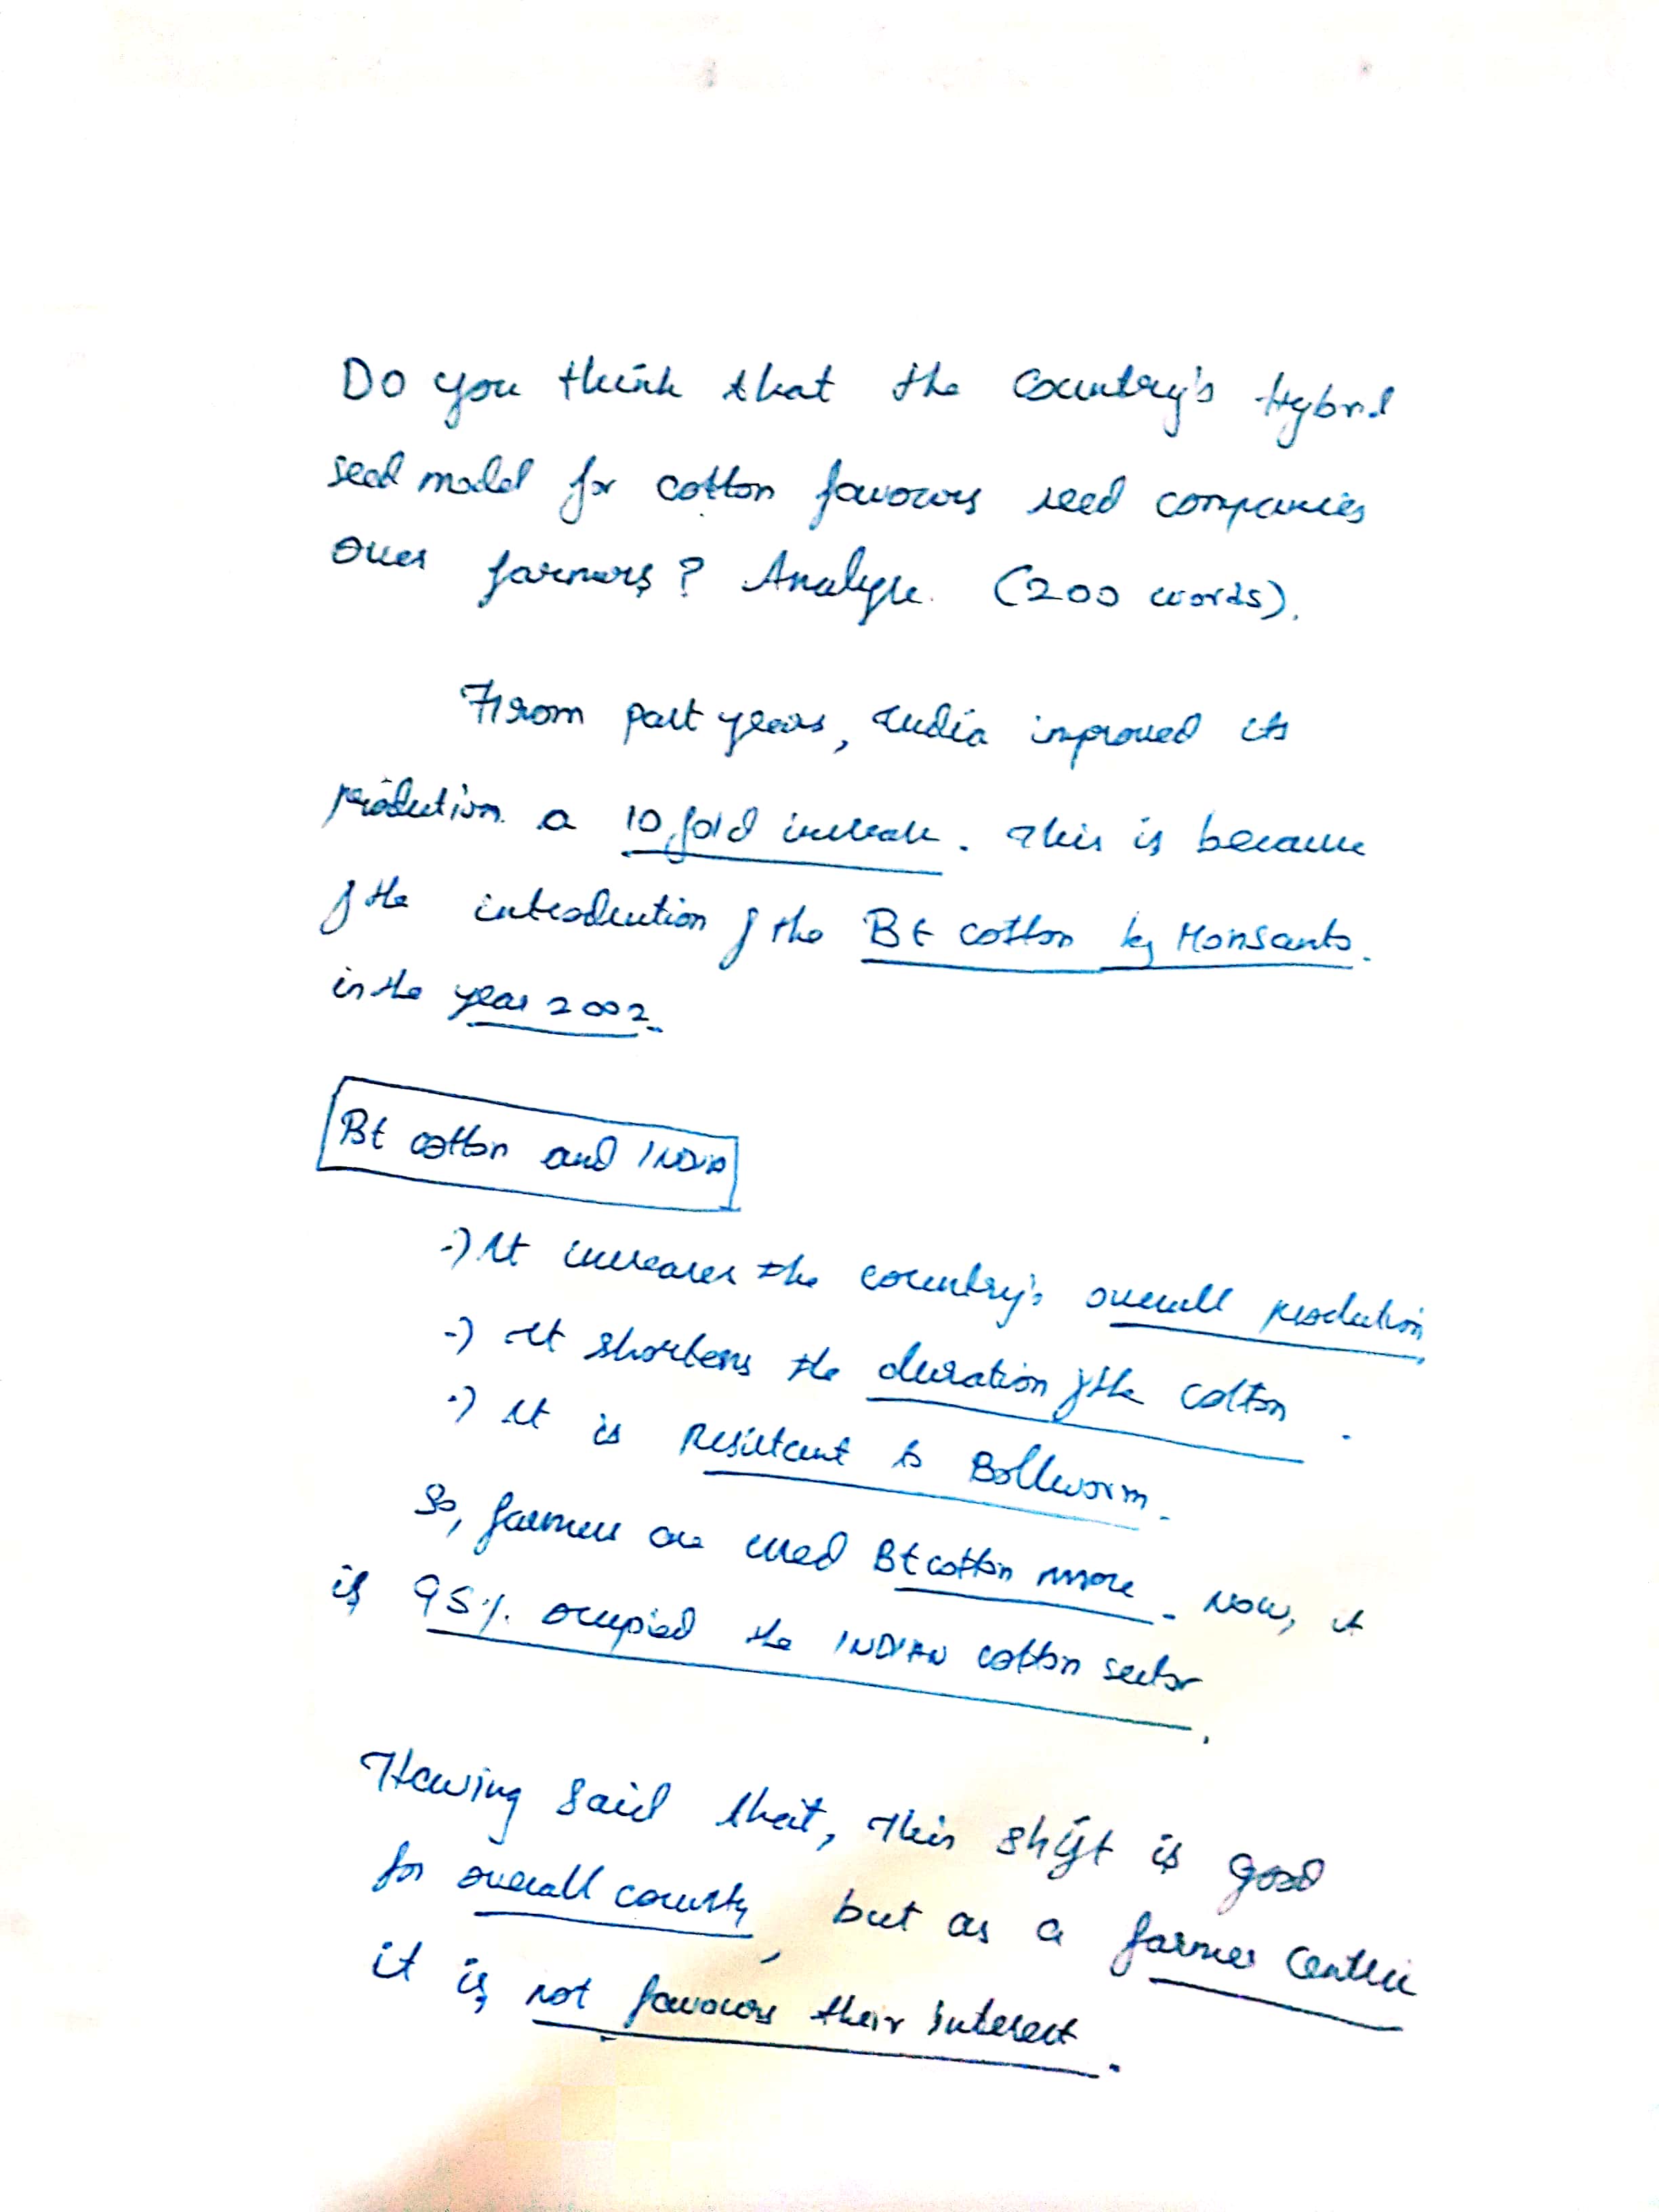 Do you think that the country's Hybrid
seed model for cotton favours seed companies
over farmers? Analyse. (200 words).
From past years, India improved its
production a 10 fold increase. This is because
of the introduction of the Bt cotton by Monsanto.
in the year 2002.
Bt cotton and INDIA
·) It increases the country's overall production,
·) It shortens the duration of the cotton.
·) It is Resistant to Bollworm.
So, farmers are used Bt cotton more. Now, it
is 95%. occupied the INDIAN cotton sector.
Having said that, this shift is good
for overall country, but as a farmer centric
it is not favours their interest.